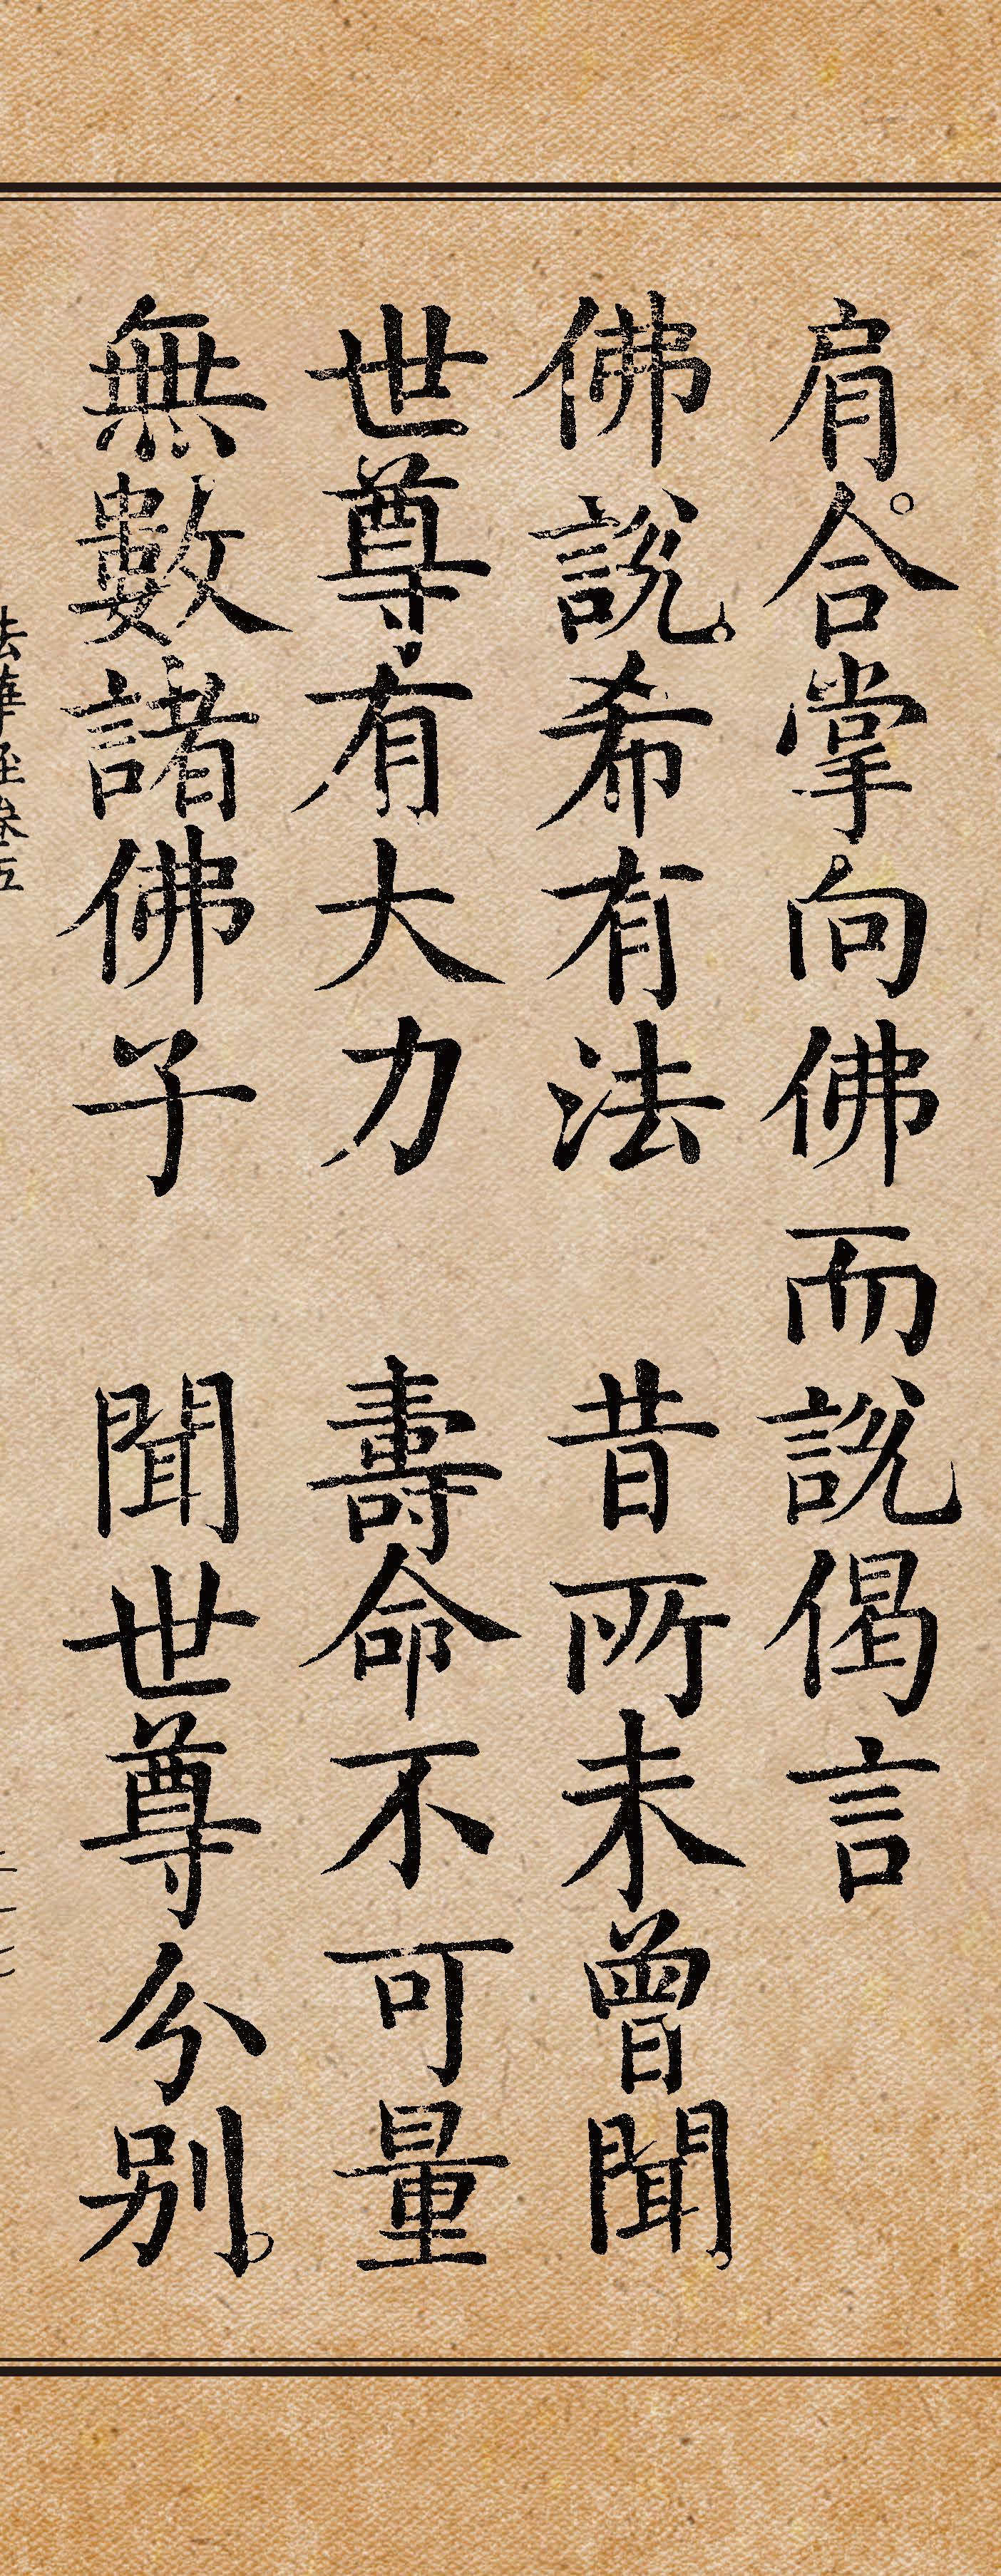 肩。合掌。向佛而說偈言
佛說。希有法　昔所未曾聞。
世尊。有大力　壽命不可量
無數諸佛子　聞世尊分別。
法華經卷五